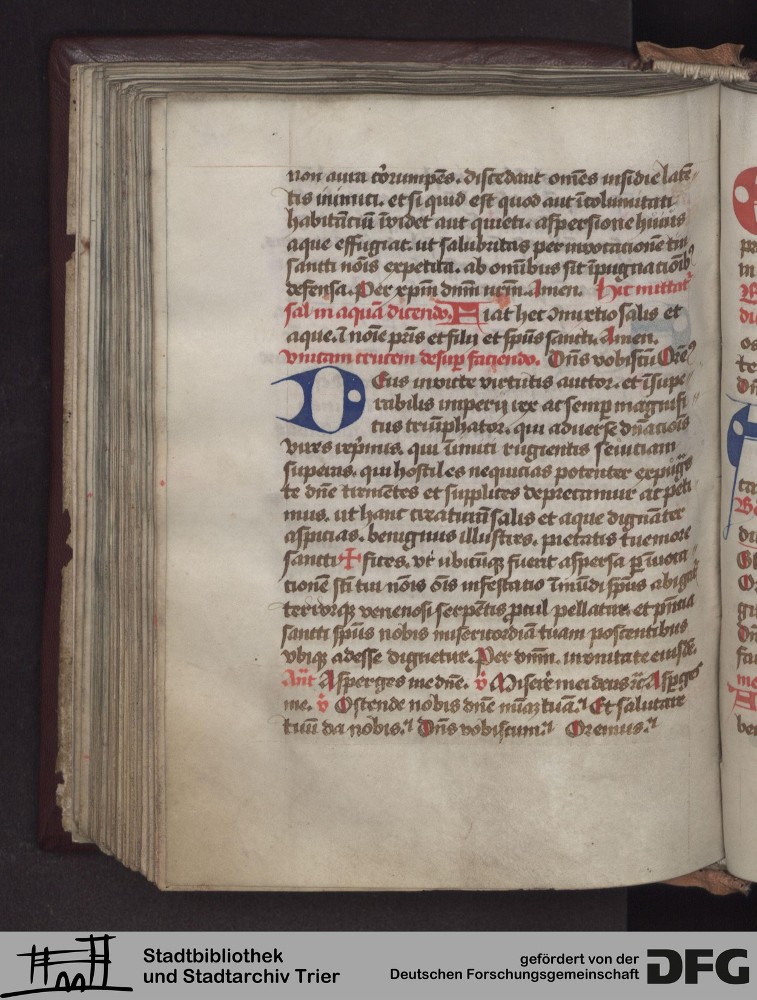 non aura cōrumpēs. discedant om̄es insidie latē
tis inimici. et si quid est quod aut īcolumitati
habitātiū īvidet aut quieti. aspersione huius
aque effugiat. ut salubritas per invocationē tui
sancti nōis expetita. ab om̄ibus sit īpugnationib
defensa. Per xpm̄ dnm̄ nrm̄. Amen. Hic mittat
sal in aquā dicendo. Fiat hec cōmixtio salis et
aque. ī noīe pr̄is et filii et sp̄us sancti. Amen.
unicam crucem desup faciendo. Dn̄s vobiscū Orē
Deus invicte virtutis auctor. et īsupe
rabilis imperii rex ac semp magnifi
cus triūphator. qui adverse dn̄acōis
vires rep̄mis. qui īimici rugientis seviciam
superas. qui hostiles nequicias potenter expūgs
te dn̄e trementes et supplices deprecamur ac peti
mus. ut hanc creaturā salis et aque dignāter
aspicias. benignus illustres. pietatis tue more
sancti + fices. ut ubicūqꝫ fuerit aspersa p̄ īvoca
tionē sc̄i tui nōis ōis infestatio īmūdi sp̄us abigat
terrorqꝫ venenosi serpētis ꝓcul pellatur. et p̄ncia
sancti sp̄us nobis misericordiā tuam poscentibus
ubiqꝫ adesse dignetur. Per dnm̄. in unitate eiusdē.
Ant̄ Asperges me dn̄e. v̄ Miserē mei deus ꝛc̄ Aspges
me. v̄ Ostende nobis dn̄e mīaꝫ tuā. Et salutare
tuū da nobis. Dn̄s vobiscum. Oremus.
Stadtbibliothek
und Stadtarchiv Trier
gefördert von der
Deutschen Forschungsgemeinschaft
DFG